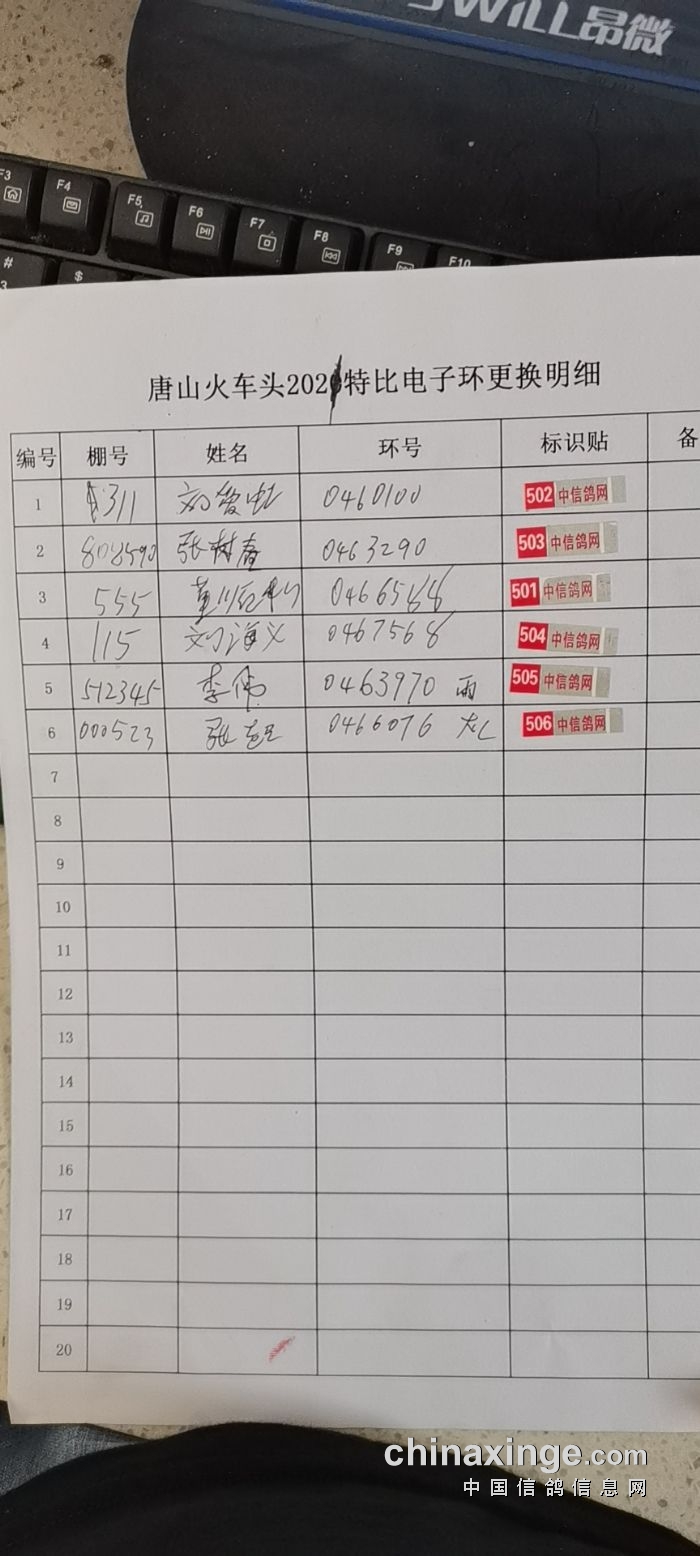 SWiLL昂微
F3 F4 F5 F6 F7 F8 F9 F10
# 3 $
唐山火车头202 特比电子环更换明细
编号 棚号 姓名 环号 标识贴 备
1 311 0460100 502 中信鸽网
2 808590 张树春 0463290 503 中信鸽网
3 555 0466588 501 中信鸽网
4 115 刘海义 0467568 504 中信鸽网
5 512345 李伟 0463970 雨 505 中信鸽网
6 000523 张志 0466076 506 中信鸽网
7
8
9
10
11
12
13
14
15
16
17
18
19
20
chinaxinge.com
中国信鸽信息网